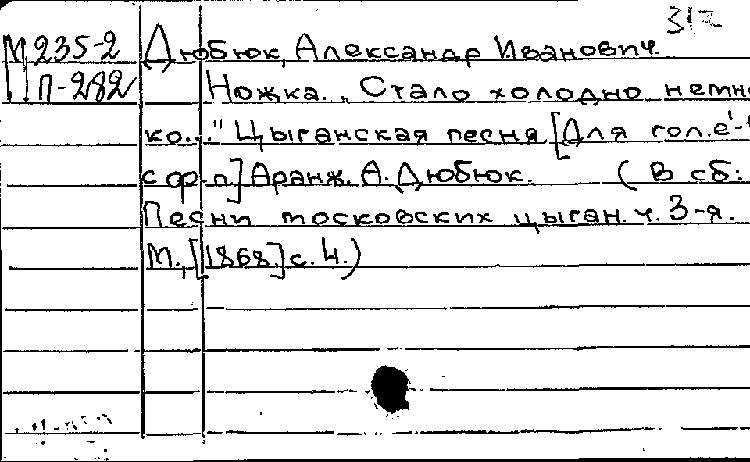 312
М 235-2 Дюбюк, Александр Иванович.
П-282 Ножка. „Стало холодно немно
ко..." Цыганская песня [Для гол. e'-
с ф.-п.] Аранж. А. Дюбюк. (В сб:
Песни московских цыган. ч. 3-я.
М., [1868] с. 4.)